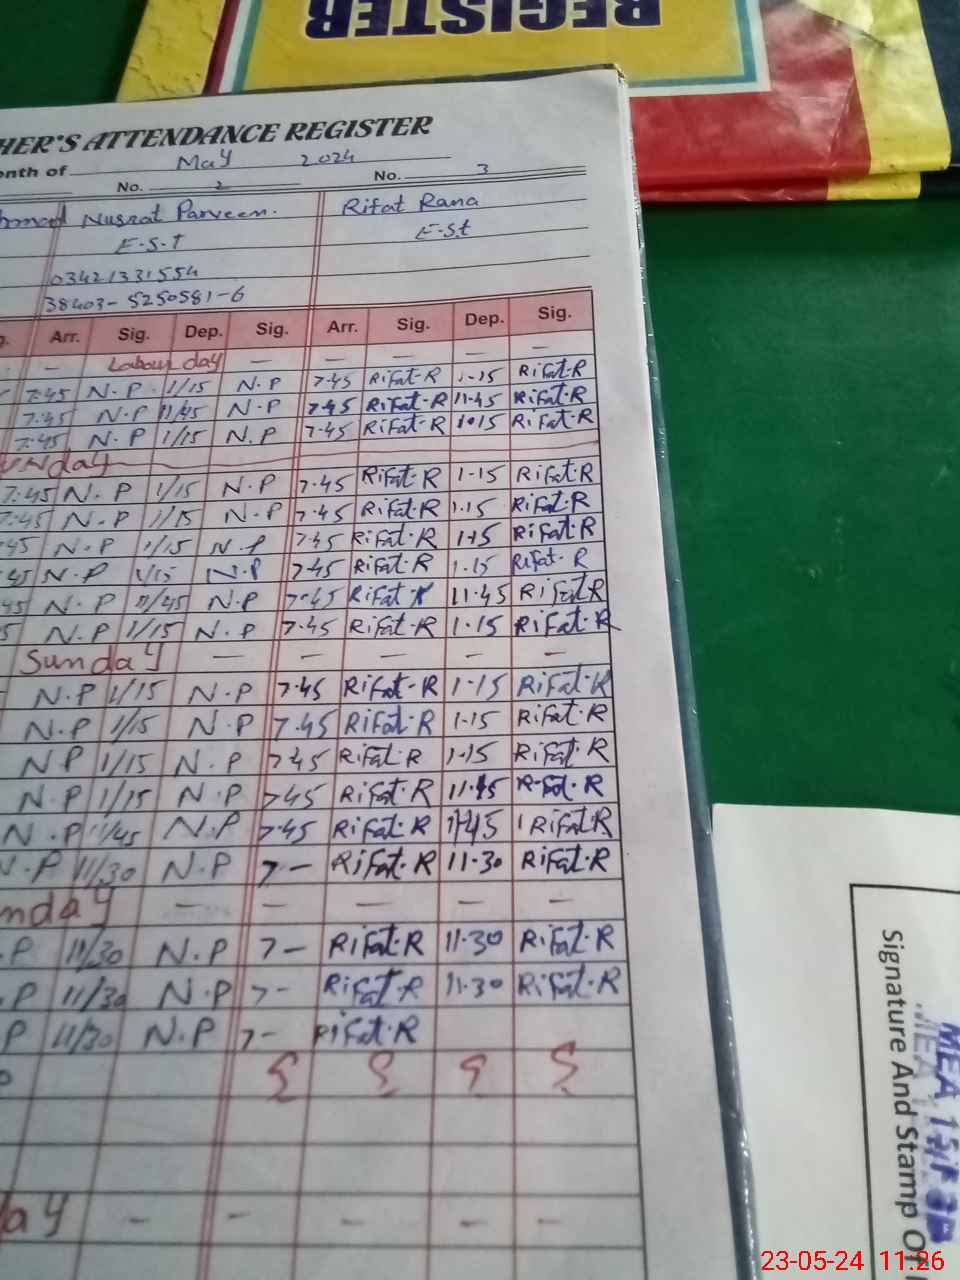 REGISTER
HER'S ATTENDANCE REGISTER
onth of May 2024
No. 2 No. 3
Nusrat Parveen. Rifat Rana
E-S-T E-St
03421331554
38403-5250581-6
Arr. Sig. Dep. Sig. Arr. Sig. Dep. Sig.
— Labour day — — — — —
7:45 N.P 1/15 N.P 7-45 Rifat-R 1-15 Rifat-R
7:45 N.P 11/45 N.P 7-45 Rifat-R 11-45 Rifat-R
7:45 N.P 1/15 N.P 7-45 Rifat-R 1-15 Rifat-R
unday
7:45 N.P 1/15 N.P 7-45 Rifat-R 1-15 Rifat-R
7:45 N.P 1/15 N.P 7-45 Rifat-R 1-15 Rifat-R
45 N.P 1/15 N.P 7-45 Rifat-R 1-15 Rifat-R
45 N.P 1/15 N.P 7-45 Rifat-R 1-15 Rifat-R
45 N.P 11/45 N.P 7-45 Rifat-R 11-45 Rifat-R
5 N.P 1/15 N.P 7-45 Rifat-R 1-15 Rifat-R
Sunday — — — — —
N.P 1/15 N.P 7-45 Rifat-R 1-15 Rifat-R
N.P 1/15 N.P 7-45 Rifat-R 1-15 Rifat-R
NP 1/15 N.P 7-45 Rifat-R 1-15 Rifat-R
N.P 1/15 N.P 7-45 Rifat-R Rifat-R
N.P 11/45 N.P 7-45 Rifat-R 11-45 Rifat-R
N.P 11/30 N.P 7- Rifat-R 11-30 Rifat-R
nday — — — — —
.P 11/30 N.P 7- Rifat-R 11-30 Rifat-R
.P 11/30 N.P 7- Rifat-R 11-30 Rifat-R
P 11/30 N.P 7- Rifat-R
ay — — — — —
Signature And Stamp Of
MEA
23-05-24 11:26